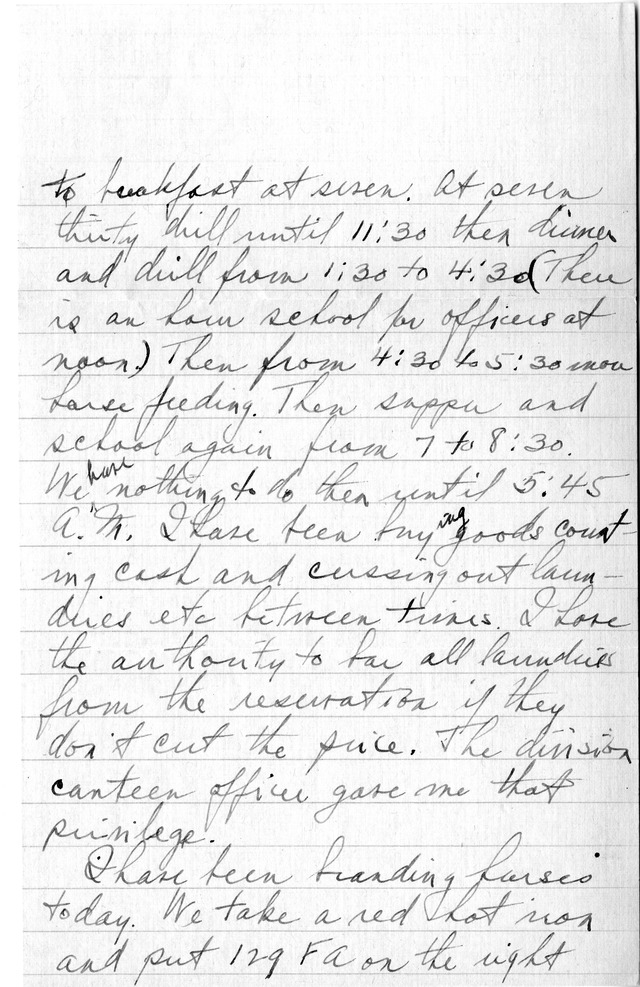 to breakfast at seven. At seven
thirty drill until 11:30 then dinner
and drill from 1:30 to 4:30 (There
is an hour school for officers at
noon.) Then from 4:30 to 5:30 more
horse feeding. Then supper and
school again from 7 to 8:30.
We have nothing to do then until 5:45
A.M. I have been buying goods count-
ing cash and cussing out laun-
dries etc between times. I have
the authority to bar all laundries
from the reservation if they
don't cut the price. The division
canteen officer gave me that
privilege.
I have been branding horses
today. We take a red hot iron
and put 129 FA on the right